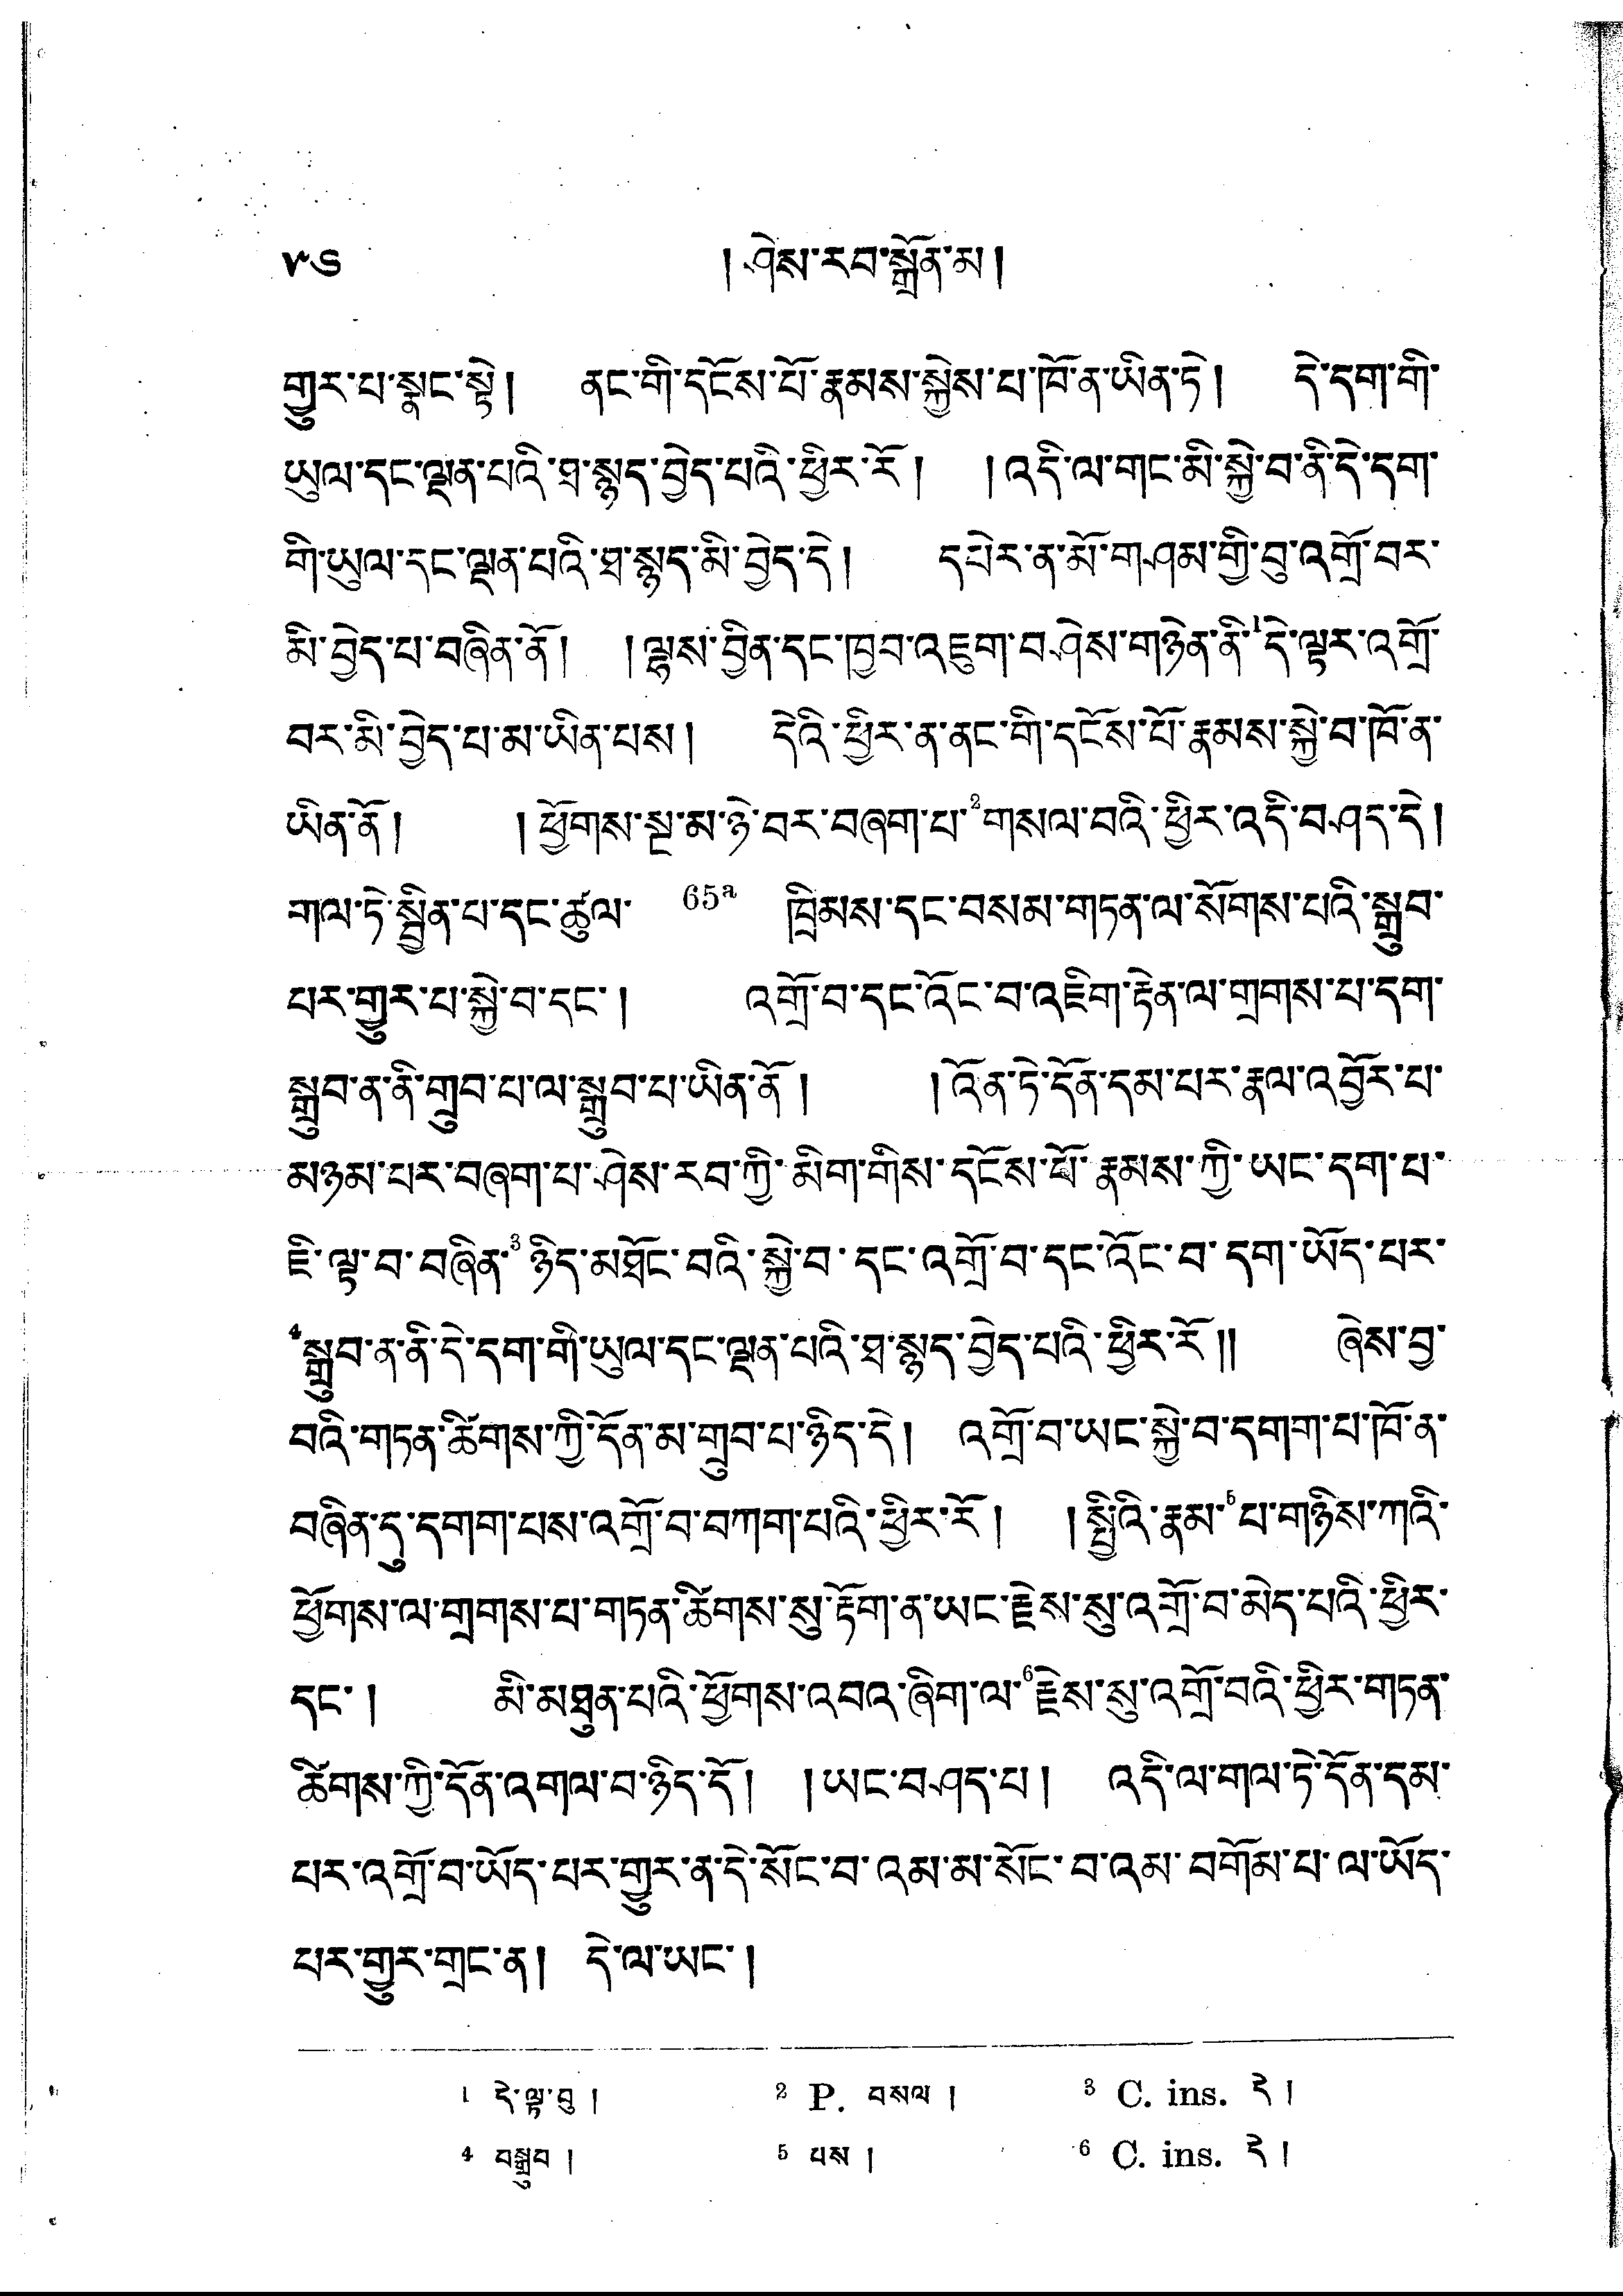 ༧༦ ། ཤེས་རབ་སྒྲོན་མ །
གྱུར་པ་སྣང་སྟེ། ནང་གི་དངོས་པོ་རྣམས་སྐྱེས་པ་ཁོ་ན་ཡིན་ཏེ། དེ་དག་གི་
ཡུལ་དང་ལྡན་པའི་ཐ་སྙད་བྱེད་པའི་ཕྱིར་རོ། །འདི་ལ་གང་མི་སྐྱེ་བ་ནི་དེ་དག་
གི་ཡུལ་དང་ལྡན་པའི་ཐ་སྙད་མི་བྱེད་དེ། དཔེར་ན་མོ་གཤམ་གྱི་བུ་འགྲོ་བར་
མི་བྱེད་པ་བཞིན་ནོ། །ལྷས་བྱིན་དང་ཁྱབ་འཇུག་བཤེས་གཉེན་ནི་¹དེ་ལྟར་འགྲོ་
བར་མི་བྱེད་པ་མ་ཡིན་པས། དེའི་ཕྱིར་ན་ནང་གི་དངོས་པོ་རྣམས་སྐྱེ་བ་ཁོ་ན་
ཡིན་ནོ། །ཕྱོགས་སྔ་མ་ཉེ་བར་བཞག་པ་²གསལ་བའི་ཕྱིར་འདི་བཤད་དེ།
གལ་ཏེ་སྦྱིན་པ་དང་ཚུལ་ 65ª ཁྲིམས་དང་བསམ་གཏན་ལ་སོགས་པའི་སྒྲུབ་
པར་གྱུར་པ་སྐྱེ་བ་དང་། འགྲོ་བ་དང་འོང་བ་འཇིག་རྟེན་ལ་གྲགས་པ་དག་
སྒྲུབ་ན་ནི་གྲུབ་པ་ལ་སྒྲུབ་པ་ཡིན་ནོ། །འོན་ཏེ་དོན་དམ་པར་རྣལ་འབྱོར་པ་
མཉམ་པར་བཞག་པ་ཤེས་རབ་ཀྱི་མིག་གིས་དངོས་པོ་རྣམས་ཀྱི་ཡང་དག་པ་
ཇི་ལྟ་བ་བཞིན་³ཉིད་མཐོང་བའི་སྐྱེ་བ་དང་འགྲོ་བ་དང་འོང་བ་དག་ཡོད་པར་
⁴སྒྲུབ་ན་ནི་དེ་དག་གི་ཡུལ་དང་ལྡན་པའི་ཐ་སྙད་བྱེད་པའི་ཕྱིར་རོ།། ཞེས་བྱ་
བའི་གཏན་ཚིགས་ཀྱི་དོན་མ་གྲུབ་པ་ཉིད་དེ། འགྲོ་བ་ཡང་སྐྱེ་བ་དགག་པ་ཁོ་ན་
བཞིན་དུ་དགག་པས་འགྲོ་བ་བཀག་པའི་ཕྱིར་རོ། །སྤྱིའི་རྣམ་⁵པ་གཉིས་ཀའི་
ཕྱོགས་ལ་གྲགས་པ་གཏན་ཚིགས་སུ་རྟོག་ན་ཡང་རྗེས་སུ་འགྲོ་བ་མེད་པའི་ཕྱིར་
དང་། མི་མཐུན་པའི་ཕྱོགས་འབའ་ཞིག་ལ་⁶རྗེས་སུ་འགྲོ་བའི་ཕྱིར་གཏན་
ཚིགས་ཀྱི་དོན་འགལ་བ་ཉིད་དོ། །ཡང་བཤད་པ། འདི་ལ་གལ་ཏེ་དོན་དམ་
པར་འགྲོ་བ་ཡོད་པར་གྱུར་ན་དེ་སོང་བ་འམ་མ་སོང་བ་འམ་བགོམ་པ་ལ་ཡོད་
པར་གྱུར་གྲང་ན། དེ་ལ་ཡང་།
¹ དེ་ལྟ་བུ། ² P. བསལ། ³ C. ins. དེ།
⁴ བསྒྲུབ། ⁵ པས། ⁶ C. ins. དེ།